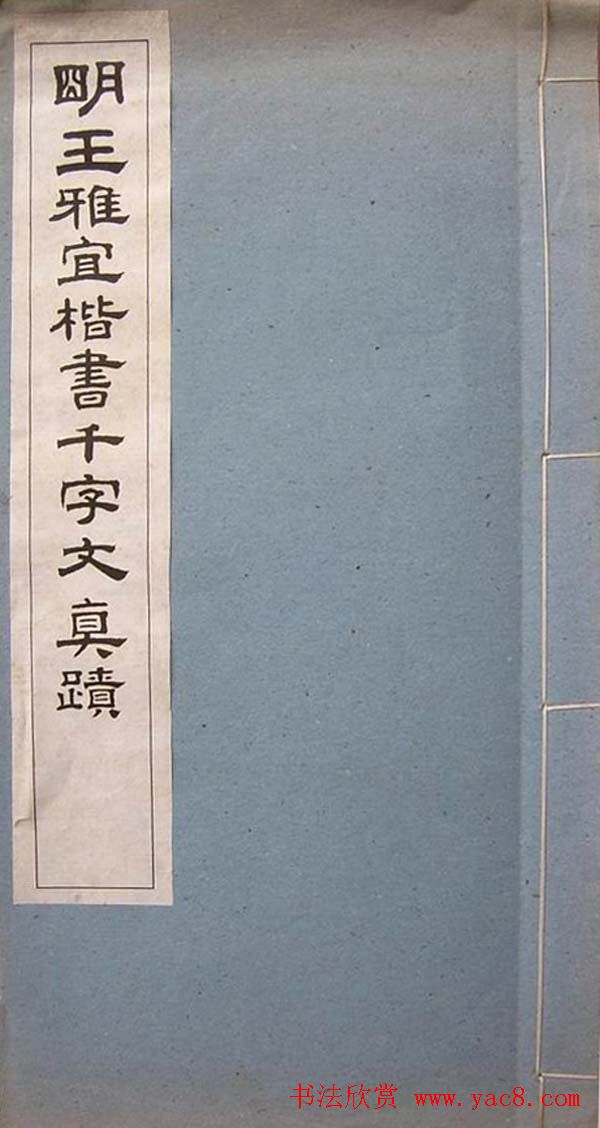 明王雅宜楷書千字文真蹟
书法欣赏 www.yac8.com